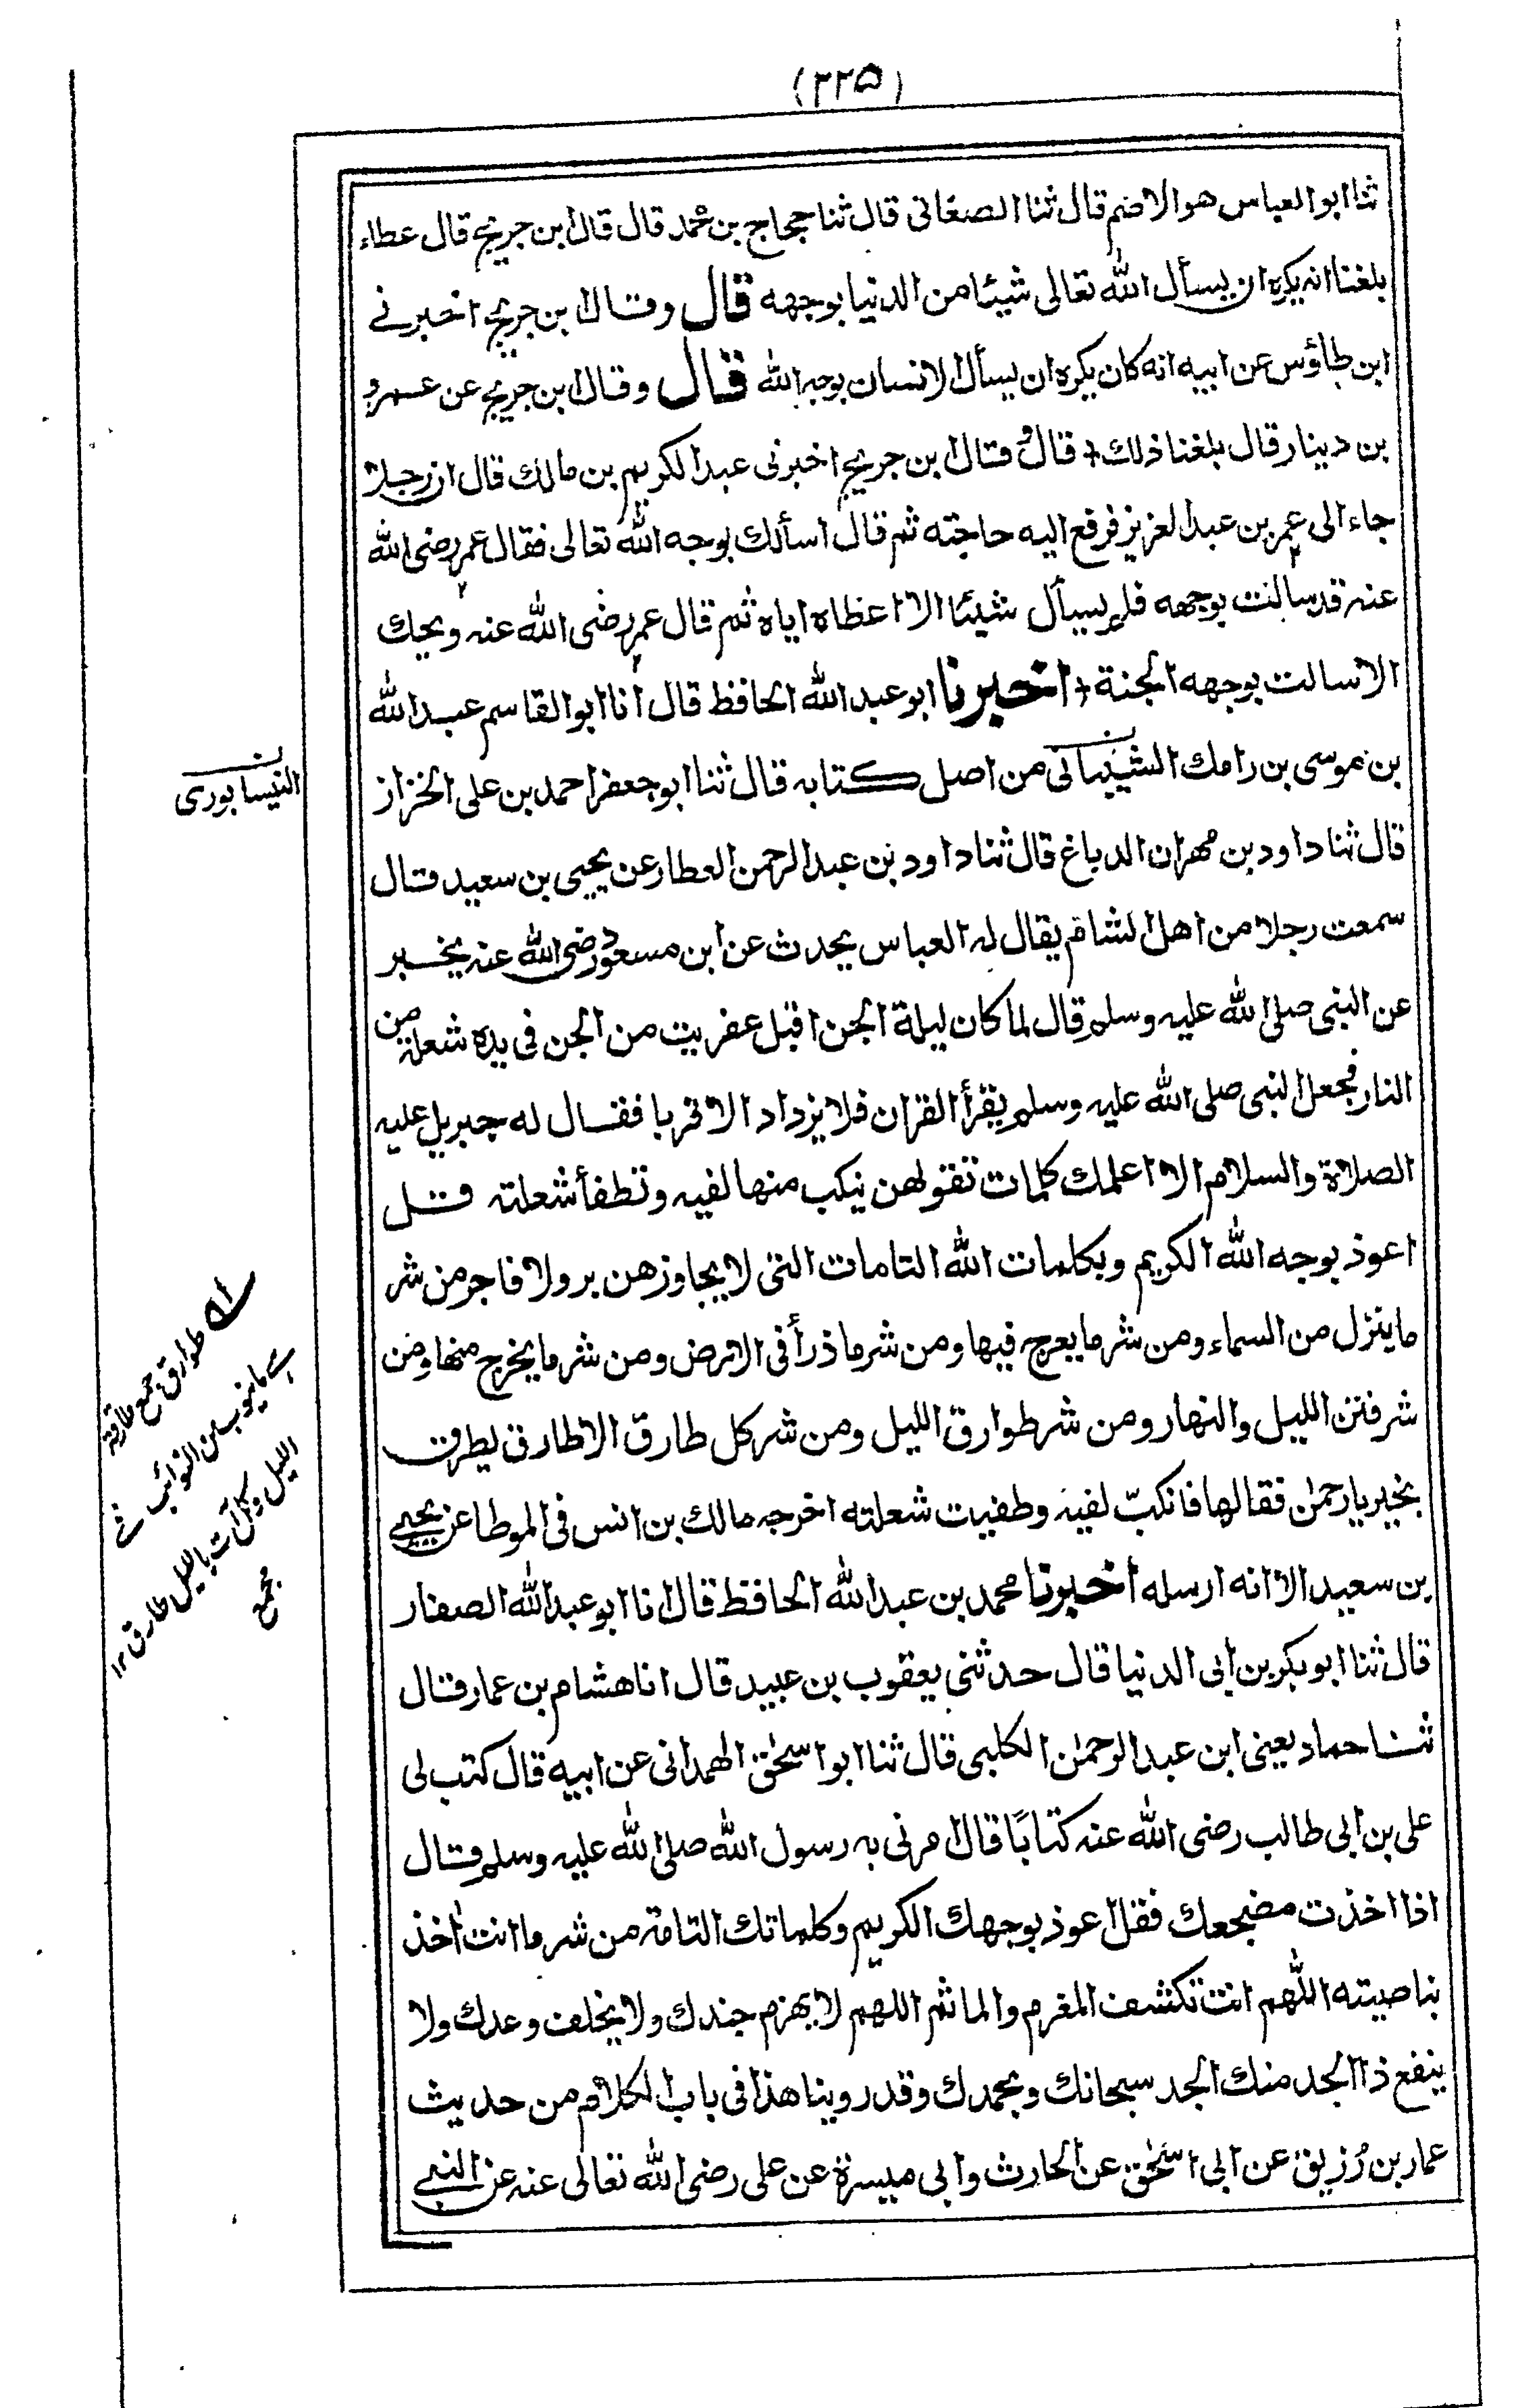 (٢٢٥)
ثنا ابو العباس هو الاصم قال ثنا الصغانى قال ثنا حجاج بن محمد قال قال ابن جريج قال عطاء
بلغنا انه يكره ان يسأل الله تعالى شيئا من الدنيا بوجهه قال وقال ابن جريج اخبرنى
ابن طاؤس عن ابيه انه كان يكره ان يسأل الانسان بوجه الله قال وقال ابن جريج عن عمرو
بن دينار قال بلغنا ذلك قال وقال ابن جريج اخبرنى عبد الكريم بن مالك قال ان رجلا
جاء الى عمر بن عبد العزيز فرفع اليه حاجته ثم قال اسألك بوجه الله تعالى فقال عمر رضى الله
عنه قد سالت بوجهه فلم يسأل شيئا الا اعطاه اياه ثم قال عمر رضى الله عنه ويحك
الا سالت بوجهه الجنة اخبرنا ابو عبد الله الحافظ قال انا ابو القاسم عبد الله
بن موسى بن رامك من اصل كتابه قال ثنا ابو جعفر احمد بن على الخزاز
النيسابورى
قال ثنا داود بن مهران الدباغ قال ثنا داود بن عبد الرحمن العطار عن يحيى بن سعيد قال
سمعت رجلا من اهل الشام يقال له العباس يحدث عن ابن مسعود رضى الله عنه يخبر
عن النبى صلى الله عليه وسلم قال لما كان ليلة الجن اقبل عفريت من الجن فى يده شعلة من
النار فجعل النبى صلى الله عليه وسلم يقرأ القران فلا يزداد الا قربا فقال له جبريل عليه
الصلاة والسلام الا اعلمك كلمات تقولهن ينكب منها لفيه وتطفأ شعلته قل
اعوذ بوجه الله الكريم وبكلمات الله التامات التى لا يجاوزهن بر ولا فاجر من شر
ما ينزل من السماء ومن شر ما يعرج فيها ومن شر ما ذرأ فى الارض ومن شر ما يخرج منها ومن
شر فتن الليل والنهار ومن شر طوارق الليل ومن شر كل طارق الا طارق يطرق
بخير يا رحمن فقالها فانكبّ لفيه وطفيت شعلته اخرجه مالك بن انس فى الموطا عن يحيى
بن سعيد الا انه ارسله اخبرنا محمد بن عبد الله الحافظ قال انا ابو عبد الله الصفار
قال ثنا ابو بكر بن ابى الدنيا قال حدثنى يعقوب بن عبيد قال انا هشام بن عمار قال
ثنا حماد يعنى ابن عبد الرحمن الكلبى قال ثنا ابو اسحٰق الهمدانى عن ابيه قال كتب لى
على بن ابى طالب رضى الله عنه كتابًا قال امرنى به رسول الله صلى الله عليه وسلم قال
اذا اخذت مضجعك فقل اعوذ بوجهك الكريم وكلماتك التامة من شر ما انت اٰخذ
بناصيته اللّٰهم انت تكشف المغرم والماثم اللهم لا يهزم جندك ولا يخلف وعدك ولا
ينفع ذا الجد منك الجد سبحانك وبحمدك وقد روينا هذا فى باب الكلام من حديث
عمار بن رُزيق عن ابى اسحٰق عن الحارث وابى ميسرة عن على رضى الله تعالى عنه عن النبى
طوارق جمع طارقة
ما ينوب من النوائب
الليل وكل آت بالليل طارق ١٢
مجمع